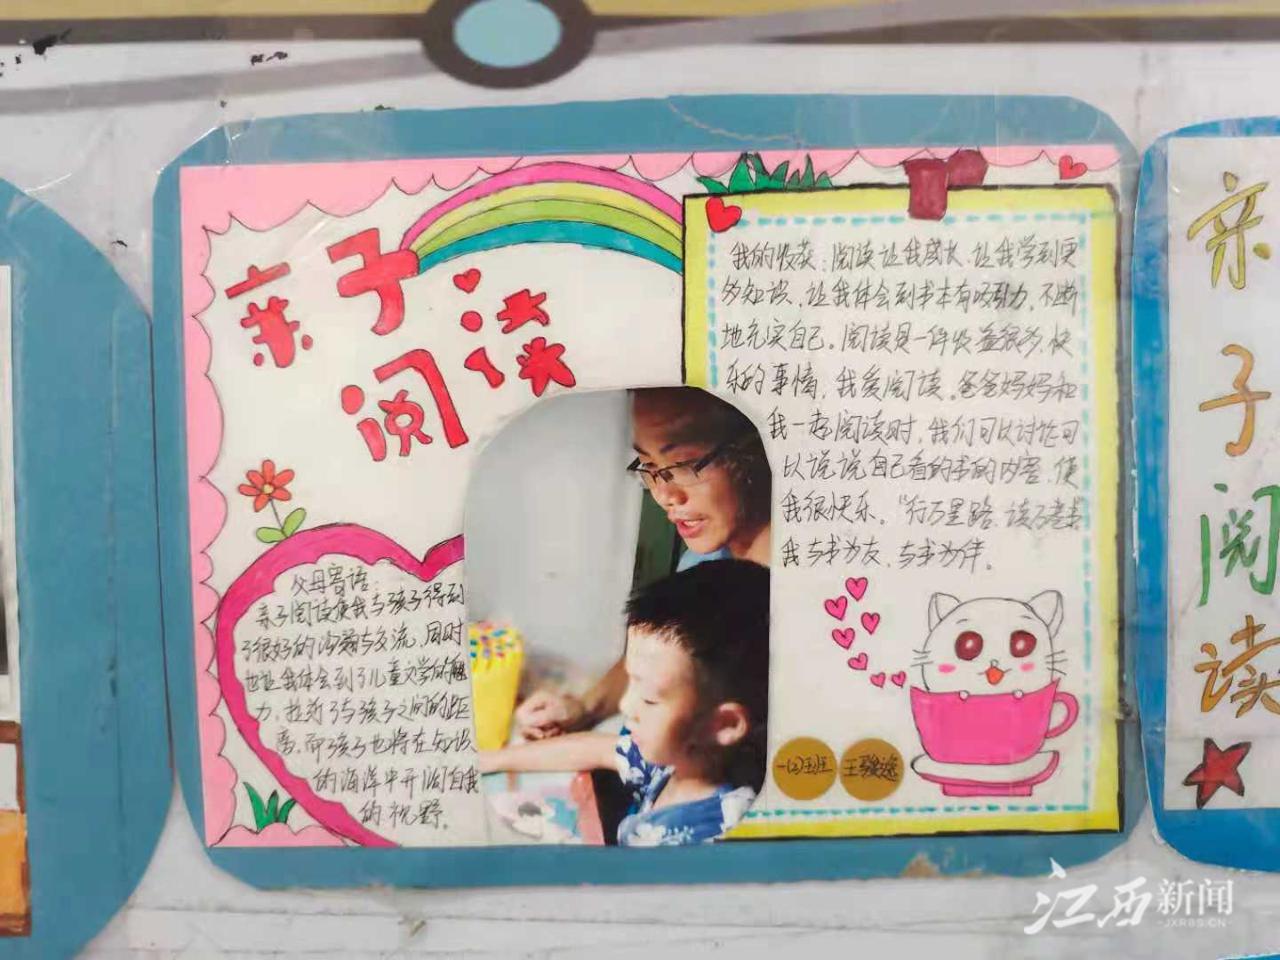 亲子
阅读
我的收获：阅读让我成长、让我学到更
多知识、让我体会到书本有吸引力，不断
地充实自己。阅读是一件收益很多、快
乐的事情，我爱阅读。爸爸妈妈和
我一起阅读时，我们可以讨论可
以说说自己看的书的内容，使
我很快乐。“行万里路、读万卷书”
我与书为友，与书为伴。
父母寄语：
亲子阅读使我与孩子得到
了很好的沟通与交流，同时
也让我体会到了儿童文学的魅
力，拉近了与孩子之间的距
离，而孩子也将在知识
的海洋中开阔自我
的视野。
一(2)班
王骏逸
亲
子
阅
读
江西新闻
JXRBS.CN